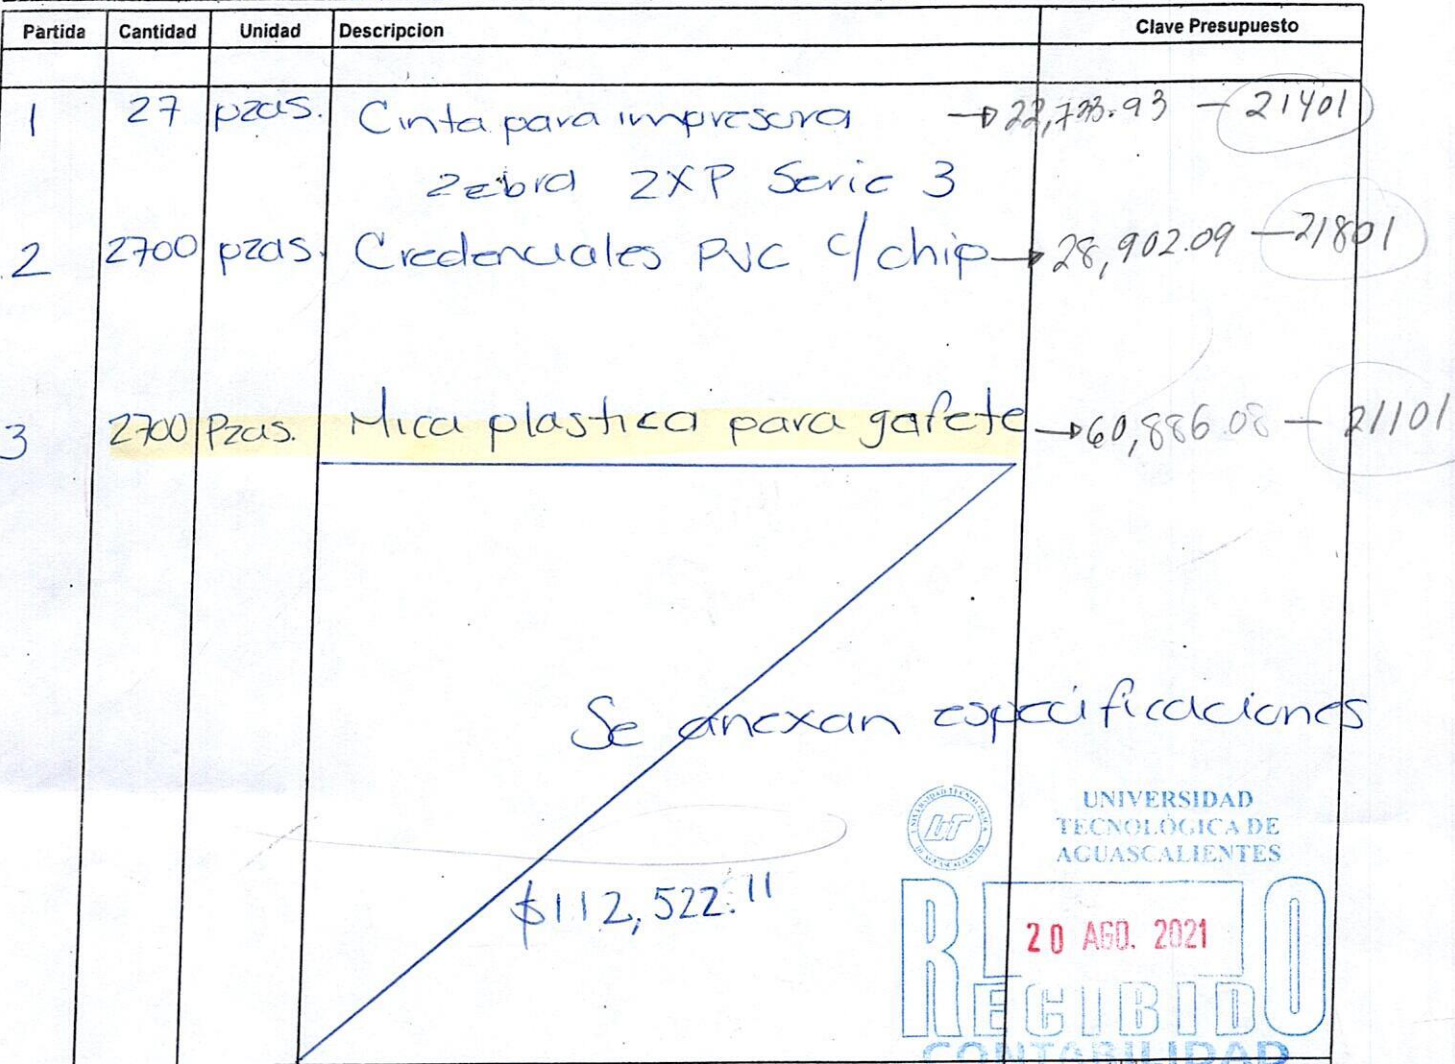 Partida Cantidad Unidad Descripcion Clave Presupuesto
1 27 pzas. Cinta para impresora → 22,733.93 – 21401
Zebra ZXP Serie 3
2 2700 pzas. Credenciales PVC c/chip → 28,902.09 – 21801
3 2700 Pzas. Mica plastica para gafete → 60,886.08 – 21101
Se anexan especificaciones
UNIVERSIDAD
TECNOLÓGICA DE
AGUASCALIENTES
UT
$112,522.11
20 AGO. 2021
RECIBIDO
CONTABILIDAD